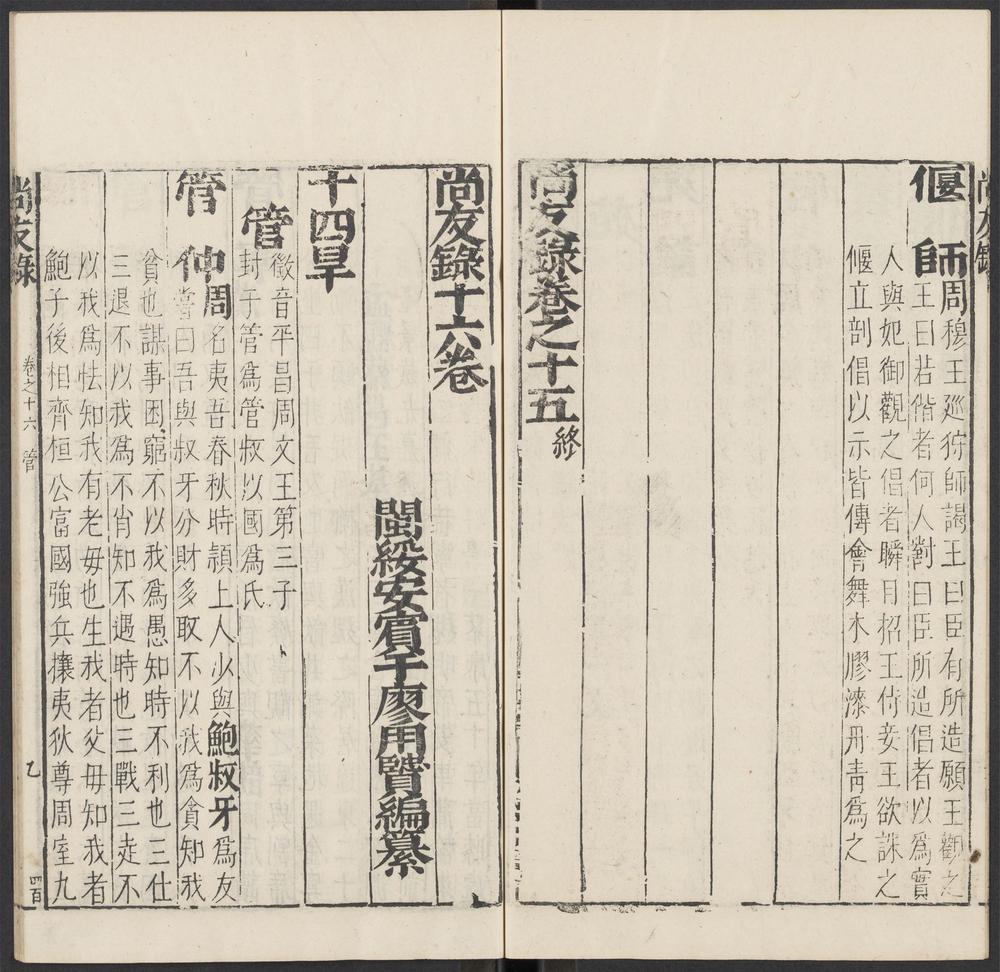 尚友錄
偃師周穆王廵狩師謁王曰臣有所造願王觀之
王曰若偕者何人對曰臣所造倡者以爲實
人與妃御觀之倡者瞬目招王侍妾王欲誅之
偃立剖倡以示皆傳會舞木膠漆丹青爲之
尚友錄卷之十五終
尚友錄十六卷
閩綏安賔于廖用賢編纂
十四旱
管徵音平昌周文王第三子
封于管爲管叔以國爲氏
管仲周名夷吾春秋時頴上人少與鮑叔牙爲友
嘗曰吾與叔牙分財多取不以我爲貪知我
貧也謀事困窮不以我爲愚知時不利也三仕
三退不以我爲不肖知不遇時也三戰三走不
以我爲怯知我有老母也生我者父母知我者
鮑子後相齊桓公富國強兵攘夷狄尊周室九
尚友錄 卷之十六 管 乙 四百